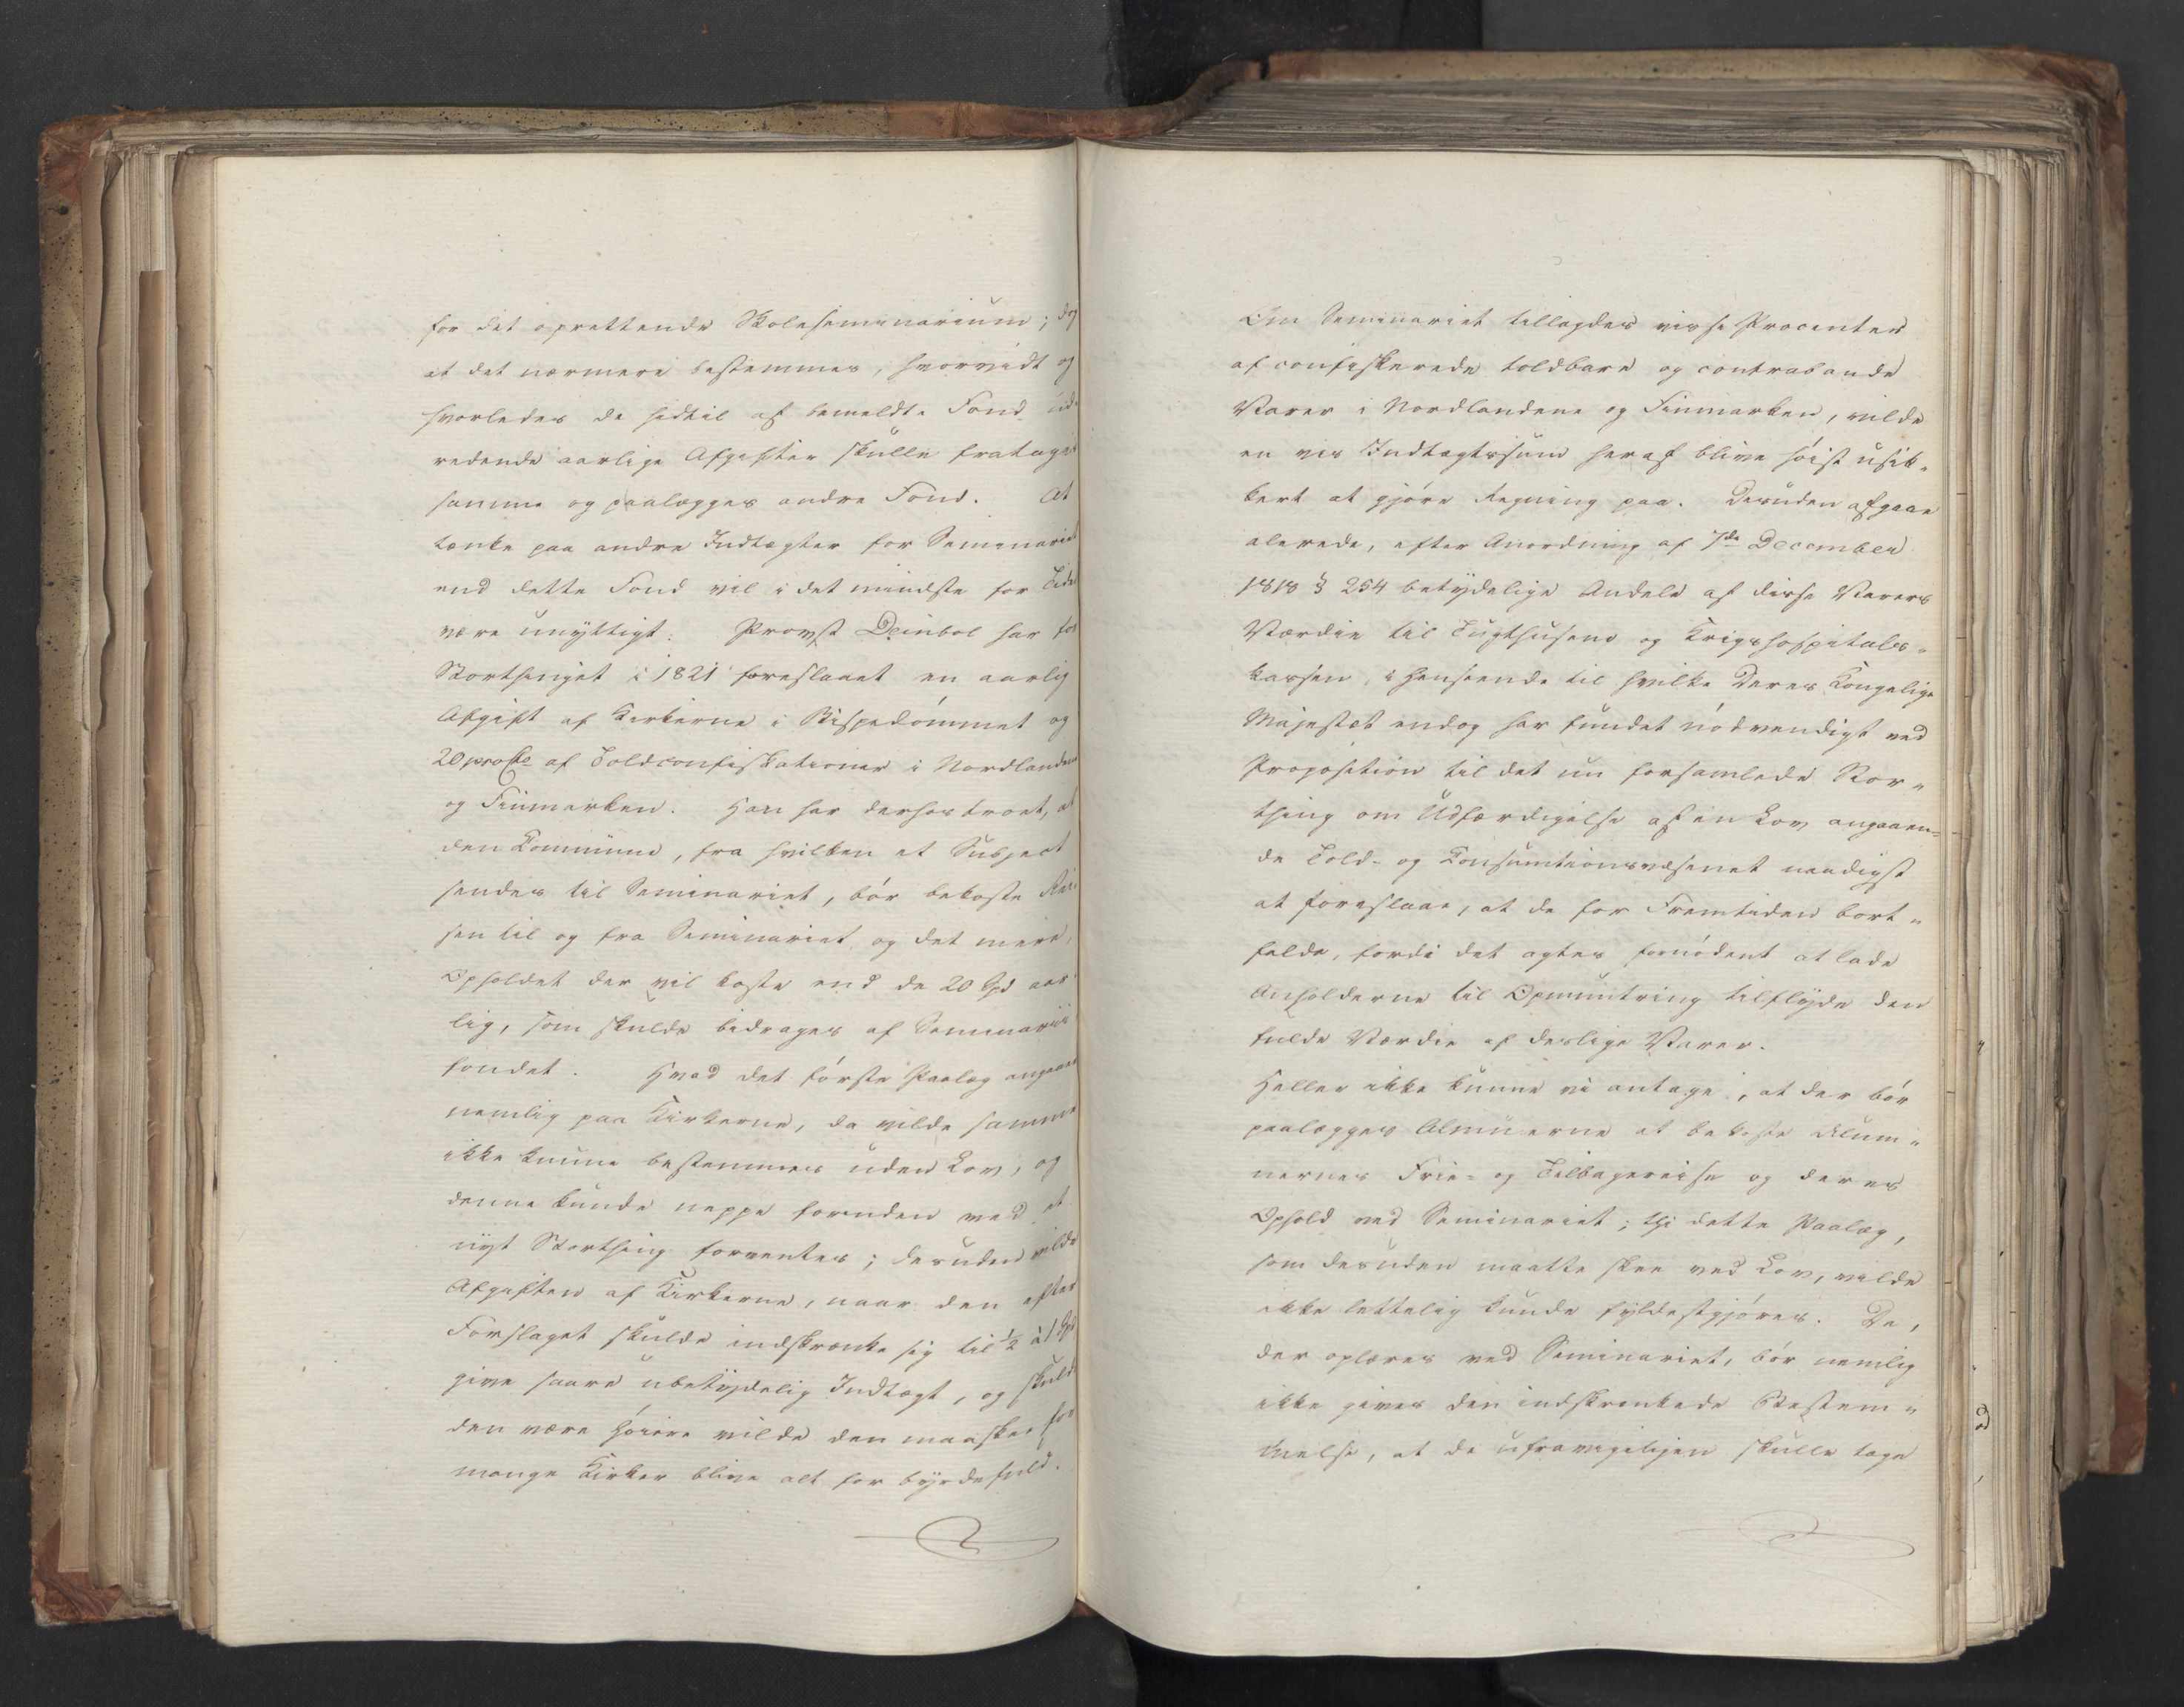 for det oprettende Skoleseminarium; dog
at det nærmere bestemmes, hvorvidt og
hvorledes de hidtil af bemeldte Fond ud-
redende aarlige Afgifter skulle fratages
samme og paalægges andre Fond. At
tænke paa andre Indtægter for Seminariet
end dette Fond vil i det mindste for Tiden
være unyttigt. Provst Deinbol har for
Storthinget i 1821 foreslaaet en aarlig
Afgift af Kirkerne i Bispedømmet og
20 proCto af Toldconfiskationer i Nordlandene
og Finmarken. Han har derhos troet, at
den Kommune, fra hvilken et Subject
sendes til Seminariet, bør bekoste Rei-
sen til og fra Seminariet og det mere,
Opholdet der vil koste end de 20 Spd aar-
lig, som skulde bidrages af Seminarii
fondet. Hvad det første Paalæg angaaer
nemlig paa Kirkerne, da vilde samme
ikke kunne bestemmes uden Lov, og
denne kunde neppe forinden ved et
nyt Storthing forventes; desuden vilde
Afgiften af Kirkerne, naar den efter
Forslaget skulde indskrænke sig til ½ à 1 Spd
give saare ubetydelig Indtægt, og skulde
den være høiere vilde den maaskee for
mange Kirker blive alt for byrdefuld.
Om Seminariet tillagdes visse Procenter
af confiskerede toldbare og contrabande
Varer i Nordlandene og Finmarken, vilde
en vis Indtægtssum heraf blive høist usik-
kert at gjøre Regning paa. Desuden afgaae
alerede, efter Anordning af 7de December
1818 § 254 betydelige Andele af disse Varers
Værdie til Tugthusene og Krigshospitals-
kassen, i Henseende til hvilke Deres Kongelige
Majestæt endog har fundet nødvendigt ved
Proposition til det nu forsamlede Stor-
thing om Udfærdigelse af en Lov angaaen-
de Told- og Konsumtionsvæsenet naadigst
at foreslaae, at de for Fremtiden bort-
falde, fordi det agtes fornødent at lade
Anholderne til Opmuntring tilflyde den
fulde Værdie af deslige Varer.
Heller ikke kunne vi antage, at der bør
paalægges Almuerne at bekoste Alum-
nernes Frie- og Tilbagereise og deres
Ophold ved Seminariet; thi dette Paalæg,
som desuden maatte skee ved Lov, vilde
ikke lettelig kunde fyldestgjøres. De,
der oplæres ved Seminariet, bør nemlig
ikke gives den indskrænkede Bestem-
melse, at de ufravigeligen skulle tage